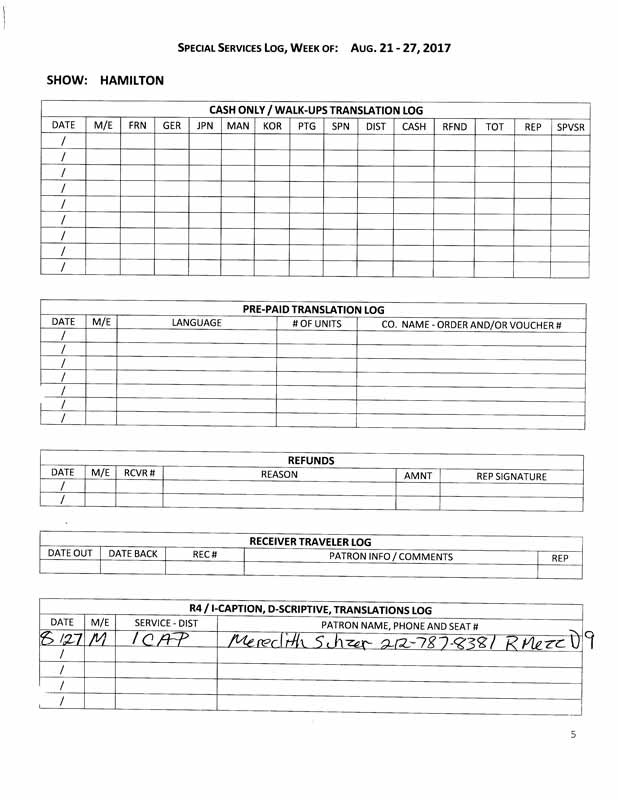 SPECIAL SERVICES LOG, WEEK OF: AUG. 21 - 27, 2017
SHOW: HAMILTON
CASH ONLY / WALK-UPS TRANSLATION LOG
DATE M/E FRN GER JPN MAN KOR PTG SPN DIST CASH RFND TOT REP SPVSR
/
/
/
/
/
/
/
/
/
PRE-PAID TRANSLATION LOG
DATE M/E LANGUAGE # OF UNITS CO. NAME - ORDER AND/OR VOUCHER #
/
/
/
/
/
/
/
REFUNDS
DATE M/E RCVR # REASON AMNT REP SIGNATURE
/
/
RECEIVER TRAVELER LOG
DATE OUT DATE BACK REC # PATRON INFO / COMMENTS REP
R4 / I-CAPTION, D-SCRIPTIVE, TRANSLATIONS LOG
DATE M/E SERVICE - DIST PATRON NAME, PHONE AND SEAT #
8/27 M I CAP Meredith 212-787-8381 R Mezz D9
/
/
/
/
5